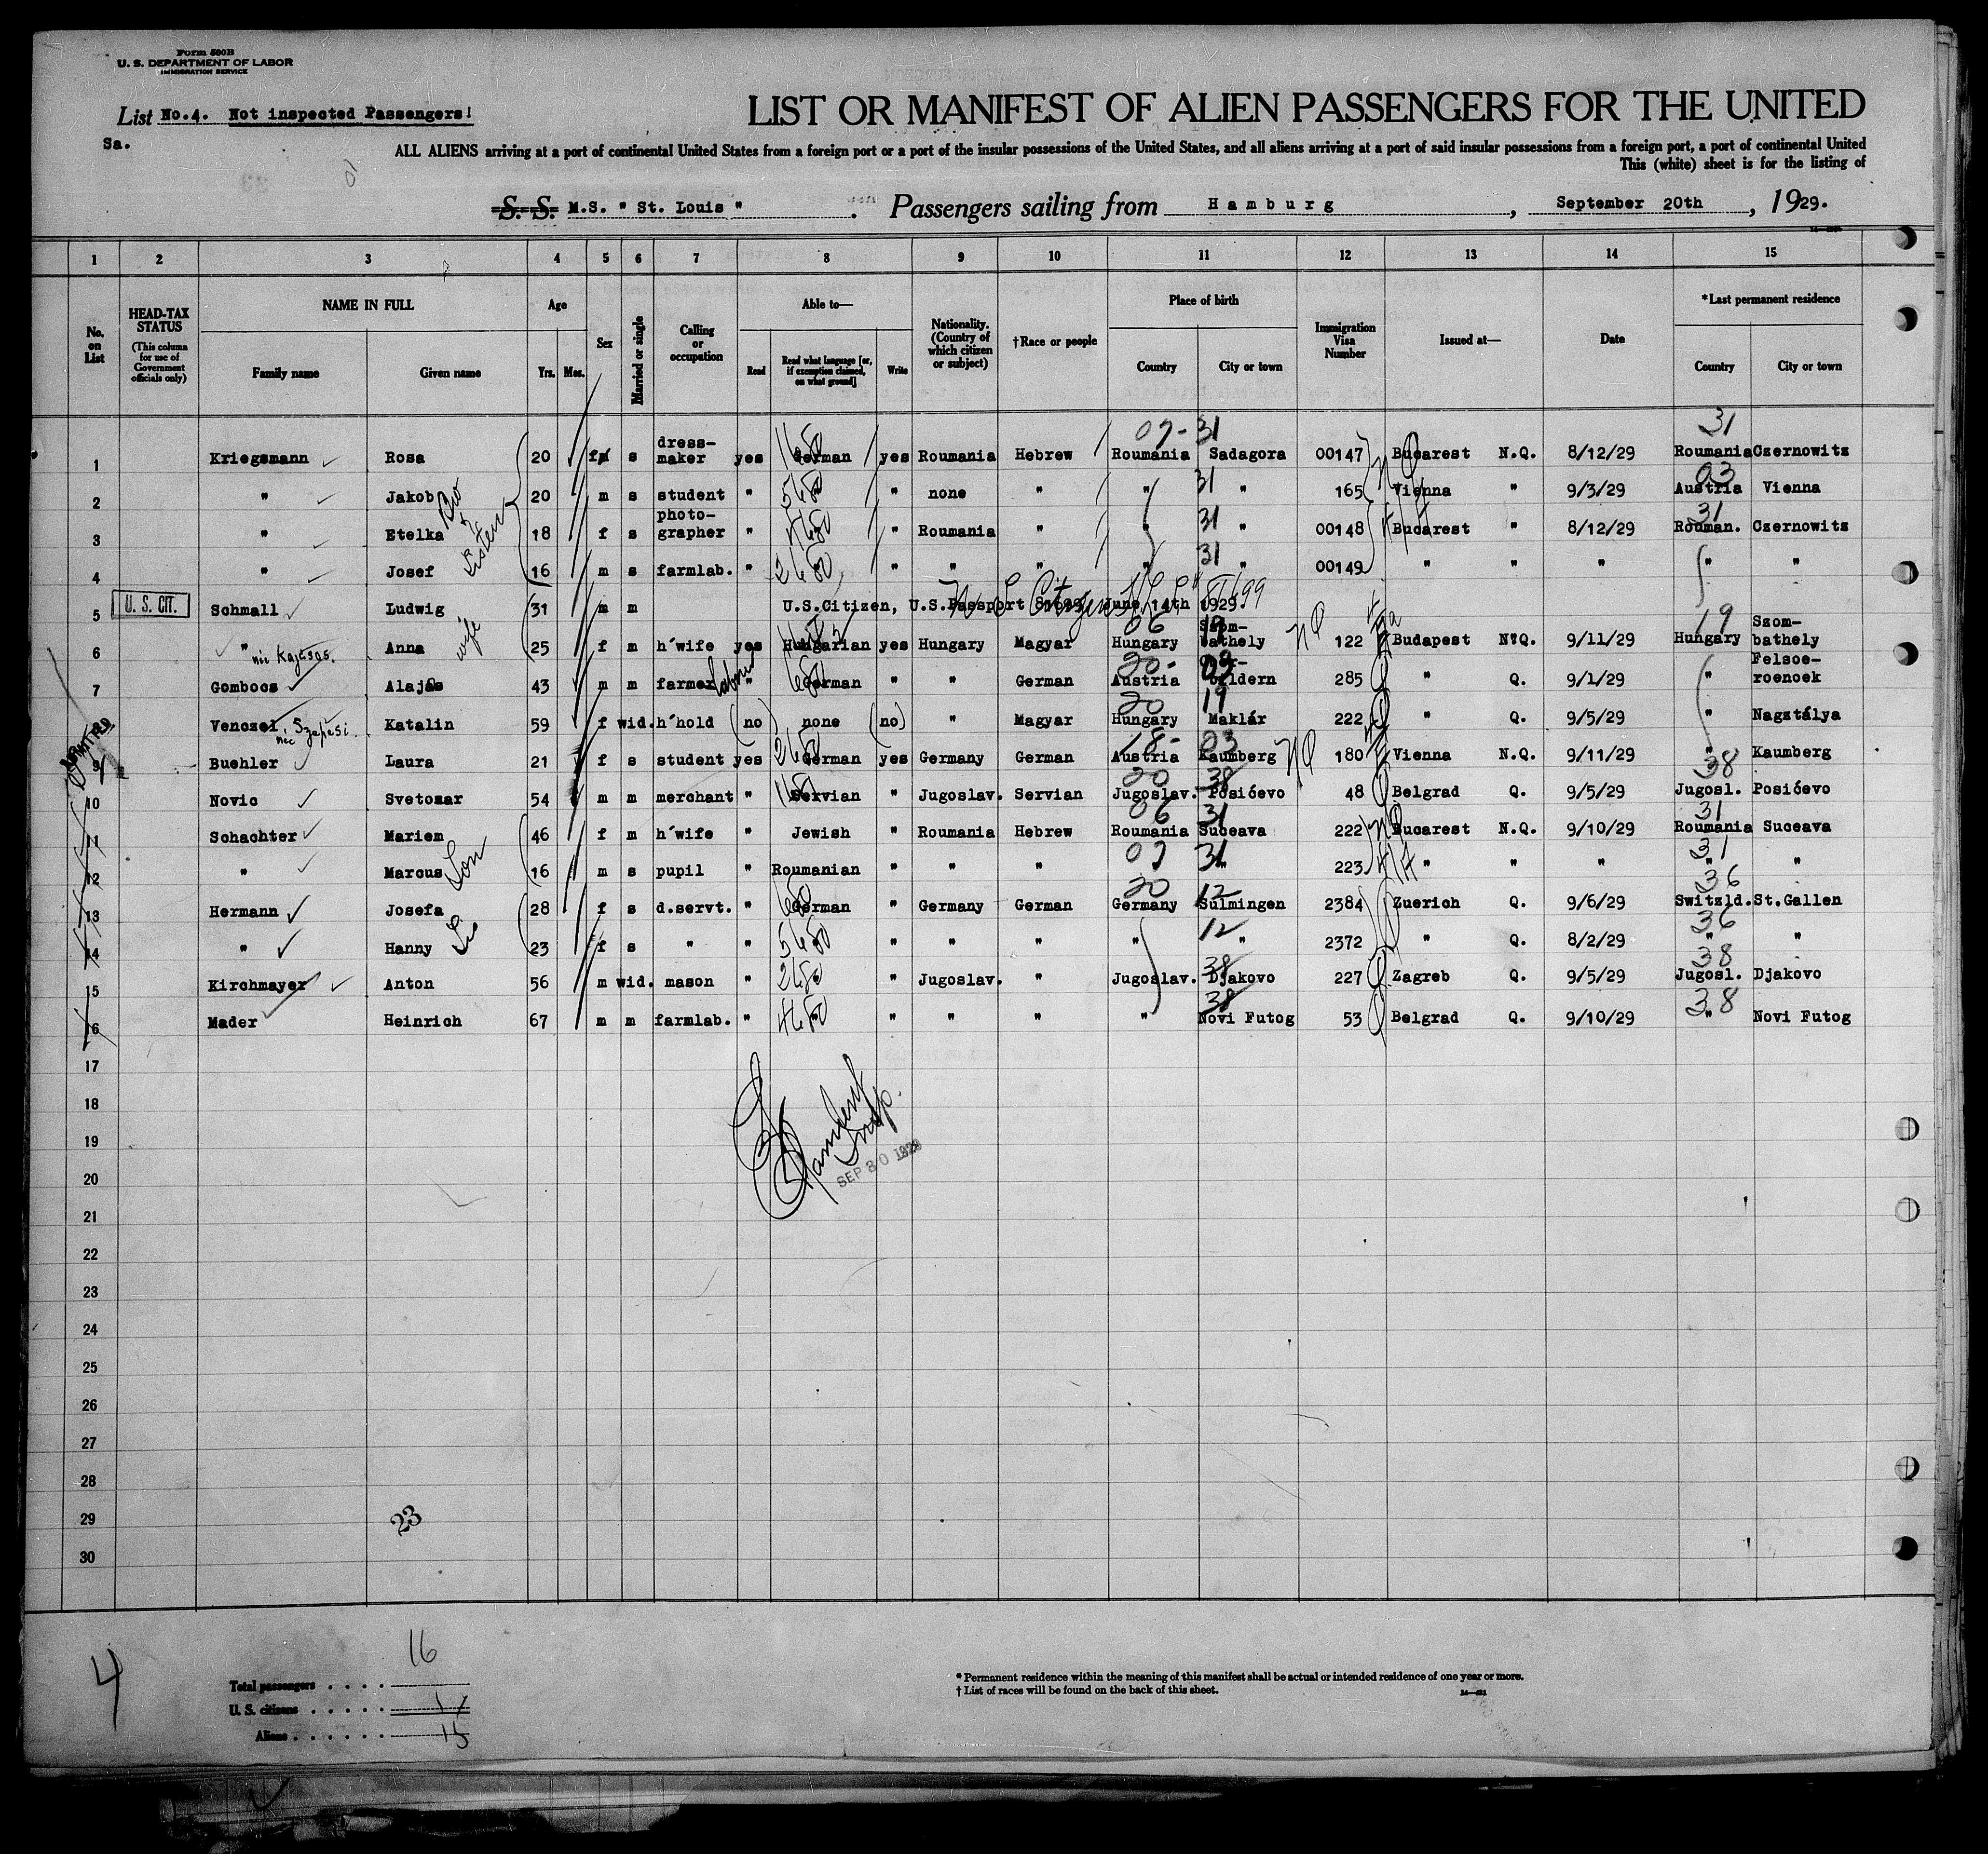 Form 500B
U. S. DEPARTMENT OF LABOR
IMMIGRATION SERVICE
List No.4. Not inspected Passengers!
Sa.
LIST OR MANIFEST OF ALIEN PASSENGERS FOR THE UNITED
ALL ALIENS arriving at a port of continental United States from a foreign port or a port of the insular possessions of the United States, and all aliens arriving at a port of said insular possessions from a foreign port, a port of continental United
This (white) sheet is for the listing of
S. S. M.S. " St. Louis " . Passengers sailing from Hamburg , September 20th , 1929.
1 2 3 4 5 6 7 8 9 10 11 12 13 14 15
No. on List
HEAD-TAX STATUS (This column for use of Government officials only)
NAME IN FULL
Family name Given name
Age
Yrs. Mos.
Sex
Married or single
Calling or occupation
Able to—
Read Read what language [or, if exemption claimed, on what ground] Write
Nationality. (Country of which citizen or subject)
†Race or people
Place of birth
Country City or town
Immigration Visa Number
Issued at—
Date
*Last permanent residence
Country City or town
07- 31 31
1 Kriegsmann Rosa 20 f s dress-maker yes German yes Roumania Hebrew Roumania Sadagora 00147 Bucarest N.Q. 8/12/29 Roumania Czernowitz
31 03
2 " Jakob Bro 20 m s student " " none " " " 165 Vienna " 9/3/29 Austria Vienna
31 31
3 " Etelka Sister 18 f s photo-grapher " " Roumania " " 00148 Bucarest " 8/12/29 Rouman. Czernowitz
31
4 " Josef 16 m s farmlab. " " " " " 00149 " " " " "
5 U. S. CIT. Schmall Ludwig 31 m m U.S.Citizen, U.S.Passport June 14th 1929
06 19 19
6 " Anna wife 25 f m h´wife yes Hungarian yes Hungary Magyar Hungary Szom-bathely NQ 122 Budapest N.Q. 9/11/29 Hungary Szom-bathely
20- 03
7 Gomboos Alajos 43 m m farmer laborer " German " " German Austria 285 " Q. 9/1/29 " Felsoe-roenoek
20 19
8 Venczel Szepesi Katalin 59 f wid. h´hold (no) none (no) " Magyar Hungary Maklár 222 " Q. 9/5/29 " Nagztálya
18- 03
9 Buehler Laura 21 f s student yes German yes Germany German Austria Kaumberg NQ 180 Vienna N.Q. 9/11/29 " Kaumberg
20 38 38
10 Novic Svetozar 54 m m merchant " Servian " Jugoslav. Servian Jugoslav. Posićevo 48 Belgrad Q. 9/5/29 Jugosl. Posićevo
06 31 31
11 Schachter Mariem 46 f m h´wife " Jewish " Roumania Hebrew Roumania Suceava 222 Bucarest N.Q. 9/10/29 Roumania Suceava
07 31 31
12 " Marcus Son 16 m s pupil " Roumanian " " " " 223 " " " " "
20 12 36
13 Hermann Josefa 28 f s d.servt. " German " Germany German Germany Sulmingen 2384 Zuerich Q. 9/6/29 Switzld. St.Gallen
12 36
14 " Hanny Sis 23 f s " " " " " " " 2372 " Q. 8/2/29 " "
38 38
15 Kirchmayer Anton 56 m wid. mason " " Jugoslav. " Jugoslav. Djakovo 227 Zagreb Q. 9/5/29 Jugosl. Djakovo
38 38
16 Mader Heinrich 67 m m farmlab. " " " " " Novi Futog 53 Belgrad Q. 9/10/29 " Novi Futog
17
18
19
SEP 30 1929
20
21
22
23
24
25
26
27
28
29
23
30
4
16
Total passengers
U. S. citizens 1
Aliens 15
* Permanent residence within the meaning of this manifest shall be actual or intended residence of one year or more.
† List of races will be found on the back of this sheet.